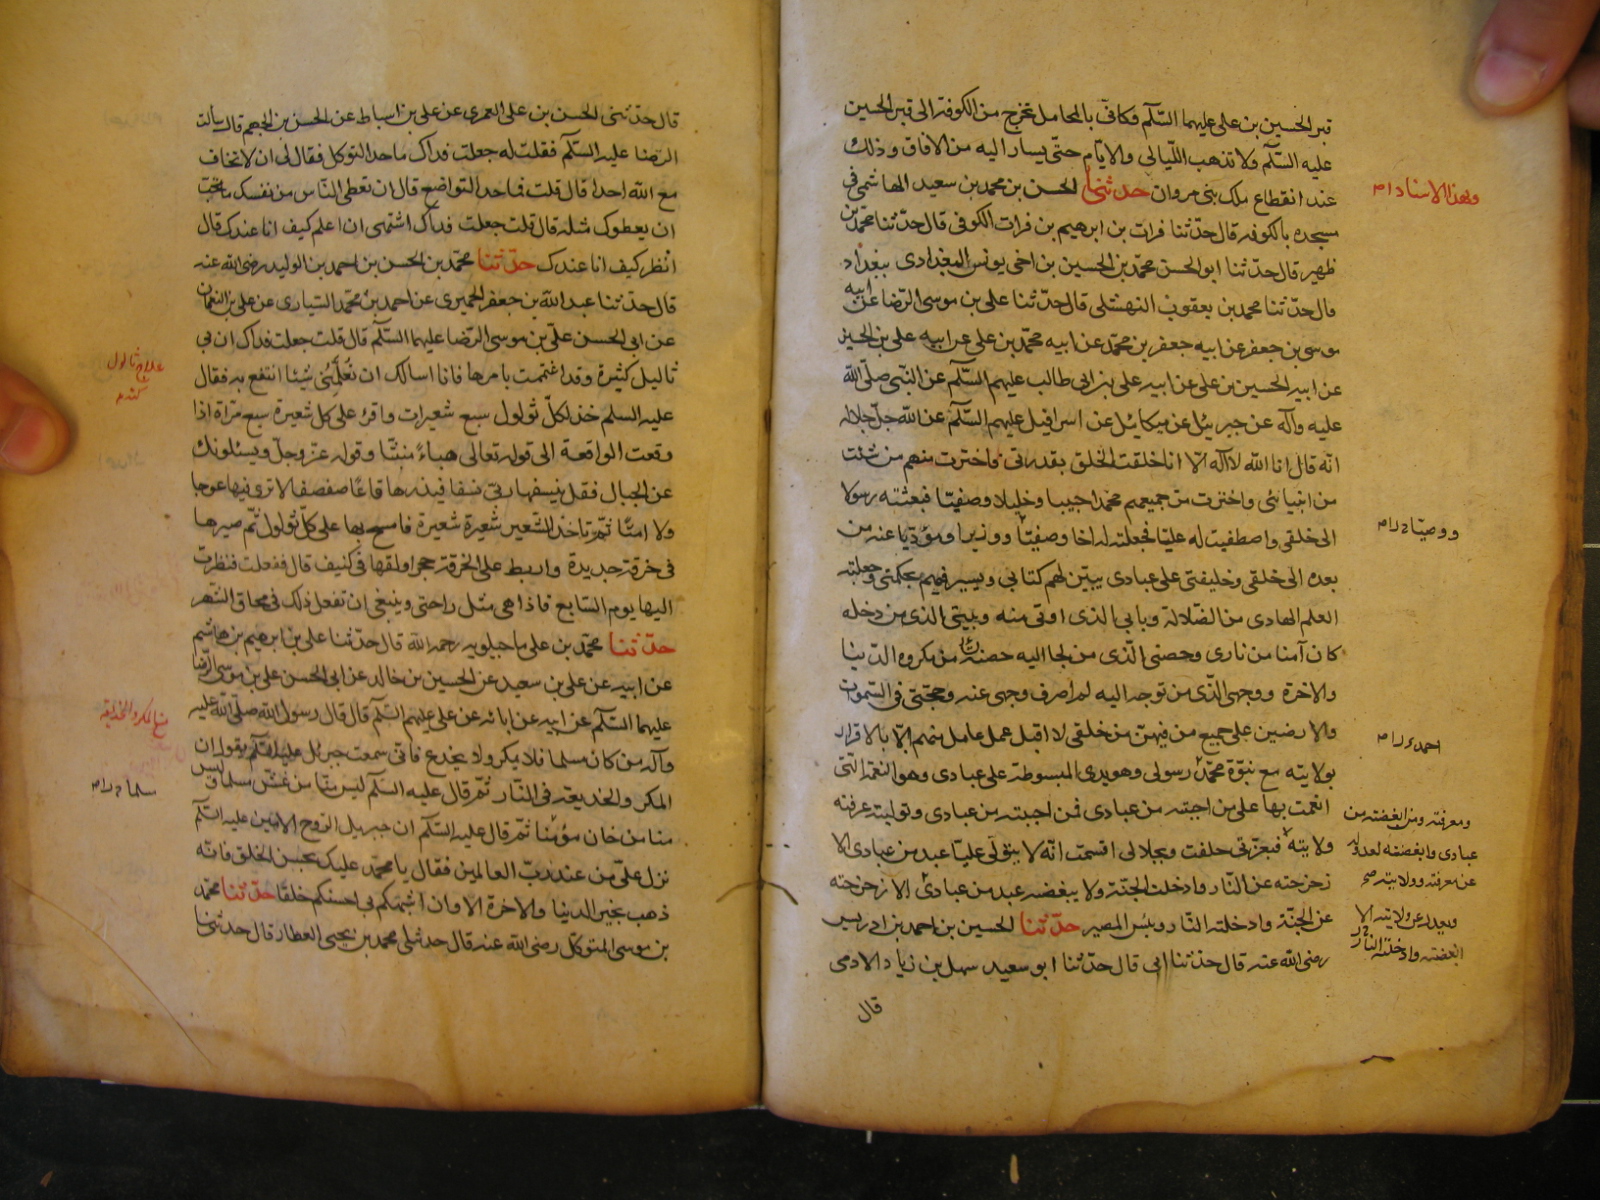 قبر الحسين بن على عليهما السّلم وكانّى بالمحامل تخرج من الكوفة الى قبر الحسين
عليه السّلم ولا تذهب اللّيالى والايّام حتّى يسار اليه من الافاق وذلك
عند انقطاع ملك بنى مروان حدثنا الحسن بن محمد بن سعيد الهاشمى فى
مسجده بالكوفه قال حدّثنا فرات بن ابرهيم بن فرات الكوفى قال حدّثنا محمد بن
ظهير قال حدّثنا ابو الحسن محمّد بن الحسين بن اخى يونس البغدادى ببغداد
قال حدّثنا محمد بن يعقوب النهشلى قال حدّثنا على بن موسى الرّضا عن ابيه
موسى بن جعفر عن ابيه جعفر بن محمّد عن ابيه محمّد بن على عن ابيه على بن الحسين
عن ابيه الحسين بن على عن ابيه على بن ابى طالب عليهم السّلم عن النّبى صلّى الله
عليه وآله عن جبرئيل عن ميكائيل عن اسرافيل عليهم السّلم عن الله جلّ جلاله
انّه قال انا الله لا اله الّا انا خلقت الخلق بقدرتى فاخترت منهم من شئت
من انبيائى واخترت من جميعهم محمدا حبيبا وخليلا وصفيّا فبعثته رسولا
الى خلقى واصطفيت له عليّا فجعلته له اخا وصفيّا ووزيرا ومؤدّيا عنه من
بعده الى خلقى وخليفتى على عبادى يبيّن لهم كتابى ويسير فيهم بحكمتى وجعلته
العلم الهادى من الضّلالة وبابى الذى اوتى منه وبيتى الذى من دخله
كان آمنا من نارى وحصنى الّذى من لجا اليه حصنه من مكروه الدّنيا
والاخرة ووجهى الّذى من توجه اليه لم اصرف وجهى عنه وحجّتى فى السّموات
والارضين على جميع من فيهنّ من خلقى لا اقبل عمل عامل منهم الّا بالاقرار
بولايته مع نبوّة محمّد رسولى وهو يدى المبسوطة على عبادى وهو النعمة الّتى
انعمت بها على من احبته من عبادى فمن احببته من عبادى وتوليته عرفته
ولايته فبعزّتى حلفت وبجلالى اقسمت انّه لا يتولّى عليّا عبد من عبادى الا
زحزحته عن النّار وادخلته الجنّة ولا يبغضه عبد من عبادى الا زحزحته
عن الجنّة وادخلته النّار وبئس المصير حدّثنا الحسين بن احمد بن ادريس
رضى الله عنه قال حدّثنا ابى قال حدّثنا ابو سعيد سهل بن زياد الادمى
قال
وبهذا الاسناد
ووصيّا
احمد
ومعرفته ومن ابغضته من
عبادى وابغضته لعدوله
عن معرفته وولايته صح
ويعدل عن ولايته الا
ابغضته وادخلته النّار
قال حدّثنى الحسن بن على العمرى عن على بن اسباط عن الحسن بن الجهم قال سألت
الرّضا عليه السّلم فقلت له جعلت فداك ما حد التوكل فقال لى ان لا تخاف
مع الله احدا قال قلت فما حد التواضع قال ان تعطى النّاس من نفسك ما تحبّ
ان يعطوك مثله قال قلت جعلت فداك اشتهى ان اعلم كيف انا عندك قال
انظر كيف انا عندك حدّثنا محمّد بن الحسن بن احمد بن الوليد رضى الله عنه
قال حدّثنا عبد الله بن جعفر الحميرى عن احمد بن محمّد السّيارى عن على بن النعمان
عن ابى الحسن علىّ بن موسى الرّضا عليهما السّلم قال قلت جعلت فداك ان بى
ثاليل كثيرة وقد اغتممت بامرها فانا اسالك ان تُعلّمنى شيئا انتفع به فقال
عليه السلم خذ لكلّ ثولول سبع شعيرات واقرء على كل شعيرة سبع مرّاة اذا
وقعت الواقعة الى قوله تعالى هباءً منبثّا وقوله عزّ وجلّ ويسئلونك
عن الجبال فقل ينسفها ربّى نسفا فيذرها قاعًا صفصفا لا ترى فيها عوجا
ولا امتًا ثم تاخذ الشّعير شعيرة شعيرة فامسح بها على كلّ ثولول ثم صيرها
فى خرقة جديدة واربط على الخرقة حجرا والقها فى كنيف قال ففعلت فنظرت
اليها يوم السّابع فاذا هى مثل راحتى وينبغى ان تفعل ذلك فى محاق الشّهر
حدّثنا محمّد بن على ماجيلويه رحمه الله قال حدّثنا على بن ابرهيم بن هاشم
عن ابيه عن على بن سعيد عن الحسين بن خالد عن ابى الحسن على بن موسى الرّضا
عليهما السّلم عن ابيه عن ابائه عن على عليهم السّلم قال قال رسول الله صلّى الله عليه
وآله من كان مسلما فلا يمكر ولا يخدع فانّى سمعت جبرئل عليه السّلم يقول ان
المكر والخديعة فى النّار ثم قال عليه السّلم ليس منّا من غشّ مسلما وليس
منا من خان مؤمنا ثم قال عليه السّلم ان جبريل الرّوح الامين عليه السّلم
نزل علىّ من عند ربّ العالمين فقال يا محمّد عليك بحسن الخلق فانّه
ذهب بخير الدنيا والاخرة الا وان اشبهكم بى احسنكم خلقا حدّثنا محمّد
بن موسى المتوكّل رضى الله عنه قال حدثنى محمد بن يحيى العطار قال حدثنا
علاج ثالول
منع المكر والخديعة
مسلما